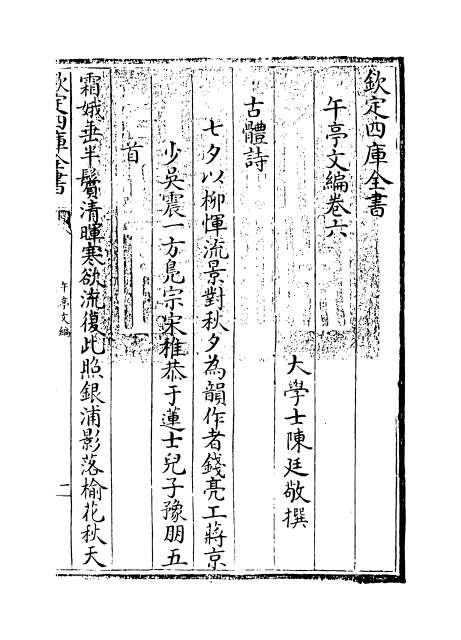 欽定四庫全書
午亭文編卷六
大學士陳廷敬撰
古體詩
七夕以柳惲流景對秋夕為韻作者錢亮工蔣京
少吳震一方鳧宗宋稚恭于蓮士兒子豫朋五
首
霜娥垂半鬢清暉寒欲流復此照銀浦影落榆花秋天
欽定四庫全書
午亭文編